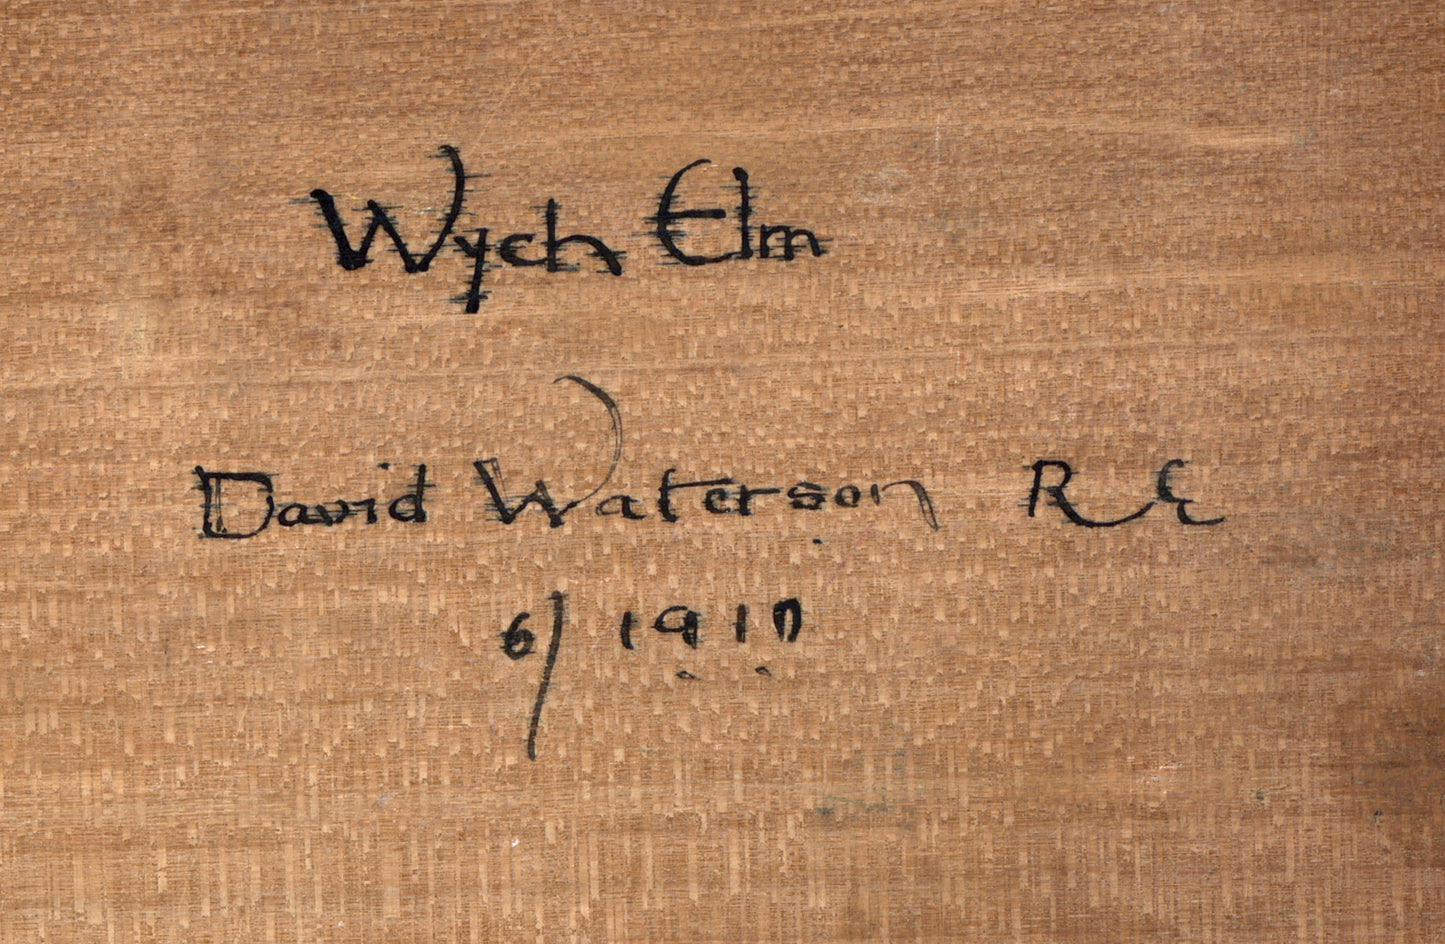 Wych Elm
David Waterson R E
6/ 1917